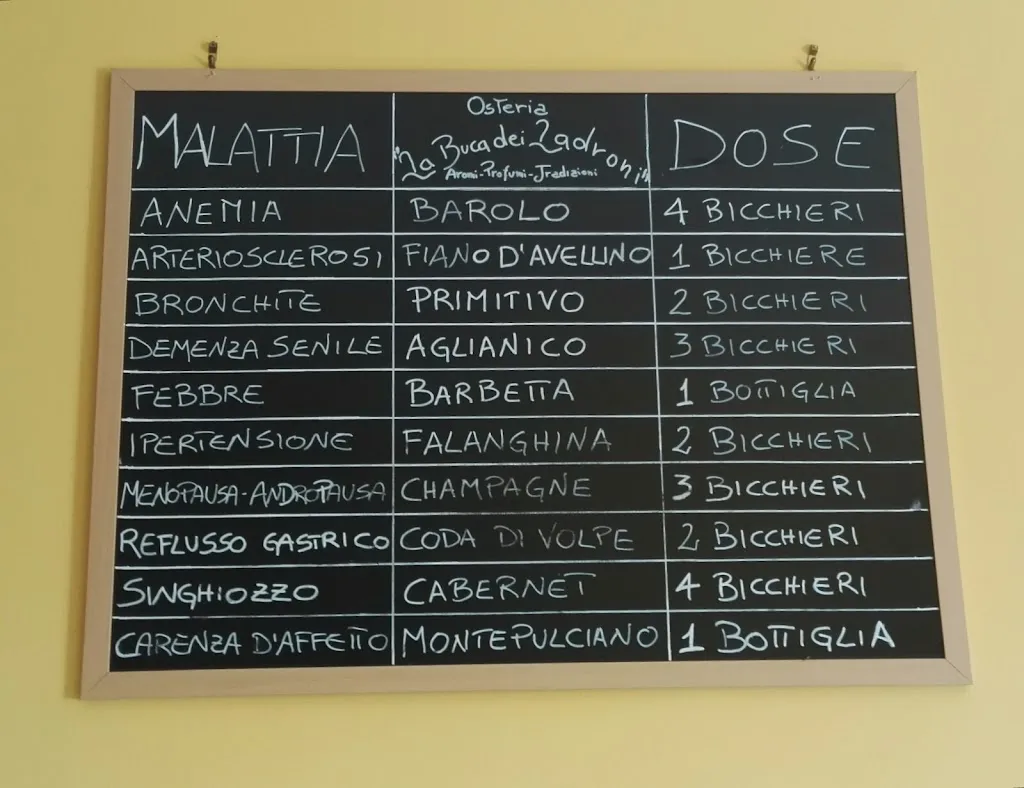 MALATTIA
Osteria
"La Buca dei Ladroni"
Aromi-Profumi-Tradizioni
DOSE
ANEMIA BAROLO 4 BICCHIERI
ARTERIOSCLEROSI FIANO D'AVELLINO 1 BICCHIERE
BRONCHITE PRIMITIVO 2 BICCHIERI
DEMENZA SENILE AGLIANICO 3 BICCHIERI
FEBBRE BARBETTA 1 BOTTIGLIA
IPERTENSIONE FALANGHINA 2 BICCHIERI
MENOPAUSA-ANDROPAUSA CHAMPAGNE 3 BICCHIERI
REFLUSSO GASTRICO CODA DI VOLPE 2 BICCHIERI
SINGHIOZZO CABERNET 4 BICCHIERI
CARENZA D'AFFETTO MONTEPULCIANO 1 BOTTIGLIA